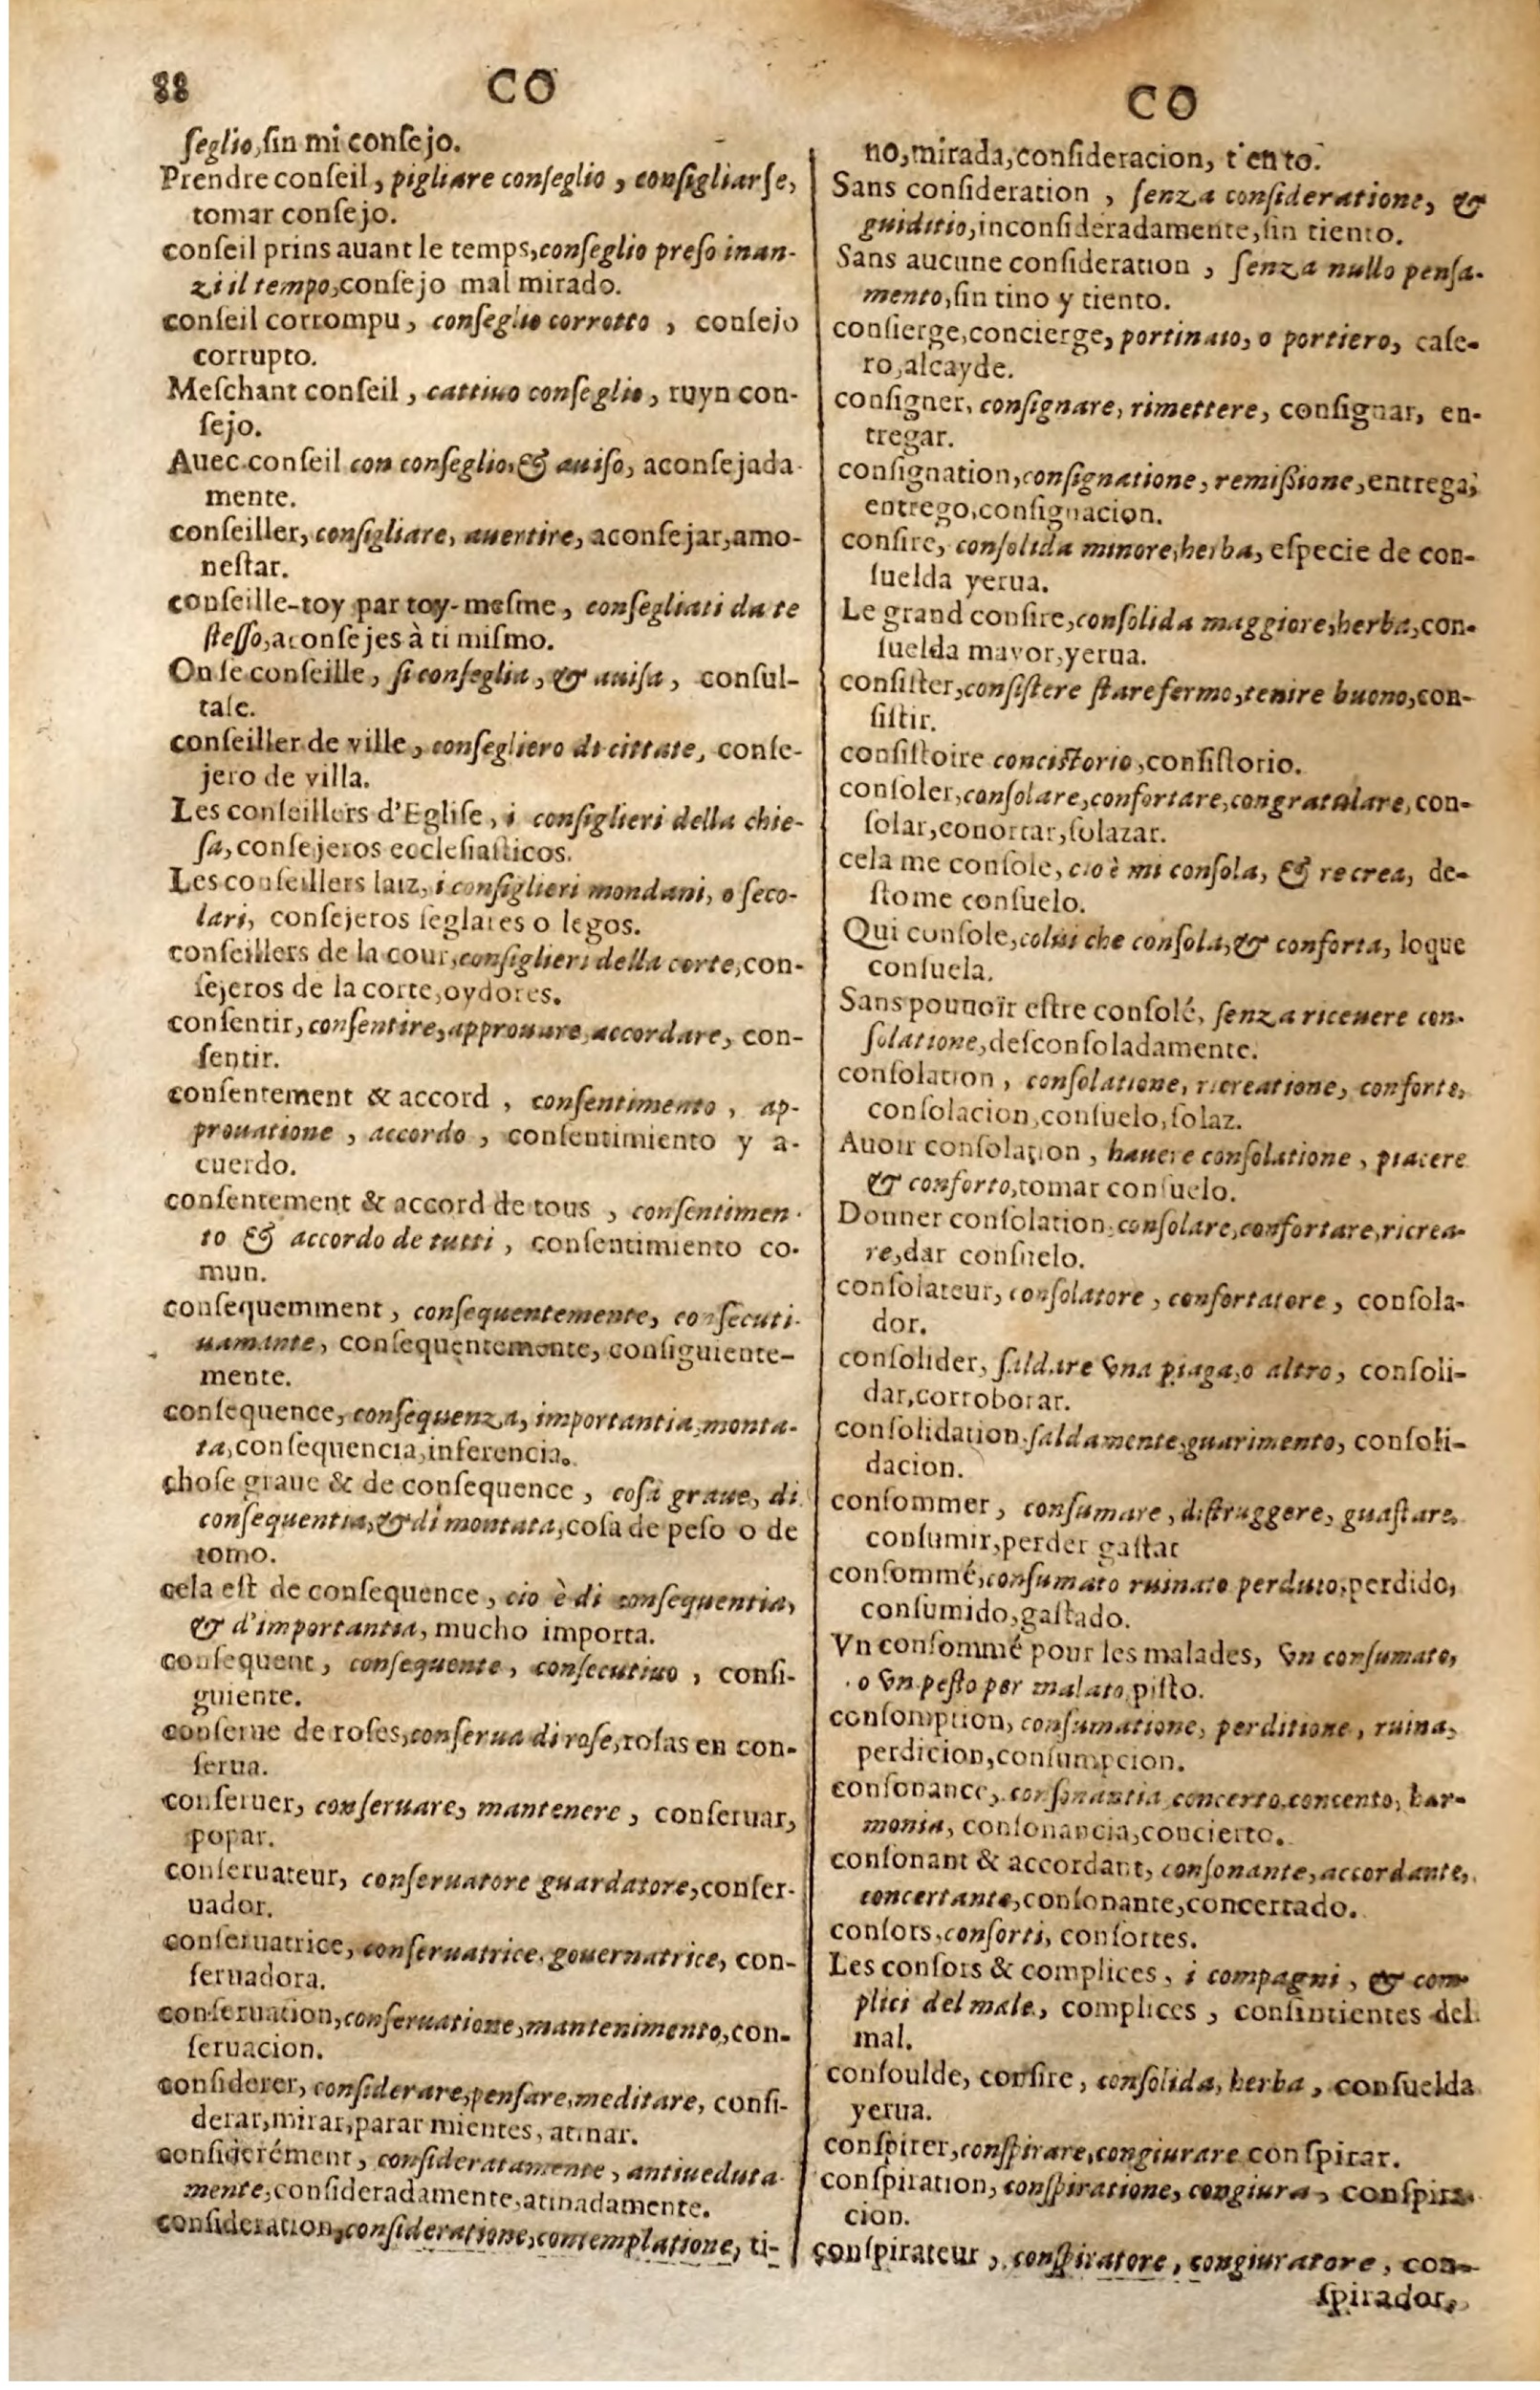 88 CO
ſeglio, ſin mi conſejo.
Prendre conſeil, pigliare conſeglio, conſigliarſe,
tomar conſejo.
conſeil prins auant le temps, conſeglio preſo inan-
zi il tempo, conſejo mal mirado.
conſeil corrompu, conſeglio corrotto, conſejo
corrupto.
Meſchant conſeil, cattiuo conſeglio, ruyn con-
ſejo.
Auec conſeil con conſeglio, & auiſo, aconſejada-
mente.
conſeiller, conſigliare, auertire, aconſejar, amo-
neſtar.
conſeille-toy par toy-meſme, conſegliati da te
ſteſſo, aconſejes à ti miſmo.
On ſe conſeille, ſi conſeglia, & auiſa, conſul-
taſe.
conſeiller de ville, conſegliero di cittate, conſe-
jero de villa.
Les conſeillers d'Egliſe, i conſiglieri della chie-
ſa, conſejeros eccleſiaſticos.
Les conſeillers laiz, i conſiglieri mondani, o ſeco-
lari, conſejeros ſeglares o legos.
conſeillers de la cour, conſiglieri della corte, con-
ſejeros de la corte, oydores.
conſentir, conſentire, approuare, accordare, con-
ſentir.
conſentement & accord, conſentimento, ap-
prouatione, accordo, conſentimiento y a-
cuerdo.
conſentement & accord de tous, conſentimen-
to & accordo de tutti, conſentimiento co-
mun.
conſequemment, conſequentemente, conſecuti-
uamante, conſequentemente, conſiguiente-
mente.
conſequence, conſequenza, importantia, monta-
ta, conſequencia, inferencia.
choſe graue & de conſequence, coſa graue, di
conſequentia, & di montata, coſa de peſo o de
tomo.
cela eſt de conſequence, cio è di conſequentia,
& d'importantia, mucho importa.
conſequent, conſequente, conſecutiuo, conſi-
guiente.
conſerue de roſes, conſerua di roſe, roſas en con-
ſerua.
conſeruer, conſeruare, mantenere, conſeruar,
popar.
conſeruateur, conſeruatore guardatore, conſer-
uador.
conſeruatrice, conſeruatrice, gouernatrice, con-
ſeruadora.
conſeruation, conſeruatione, mantenimento, con-
ſeruacion.
conſiderer, conſiderare, penſare, meditare, conſi-
derar, mirar, parar mientes, atinar.
conſiderément, conſideratamente, antiueduta-
mente, conſideradamente, atinadamente.
conſideration, conſideratione, contemplatione, ti-
CO
no, mirada, conſideracion, tiento.
Sans conſideration, ſenza conſideratione, &
guiditio, inconſideradamente, ſin tiento.
Sans aucune conſideration, ſenza nullo penſa-
mento, ſin tino y tiento.
conſierge, concierge, portinaio, o portiero, caſe-
ro, alcayde.
conſigner, conſignare, rimettere, conſignar, en-
tregar.
conſignation, conſignatione, remißione, entrega,
entrego, conſignacion.
conſire, conſolida minore, herba, eſpecie de con-
ſuelda yerua.
Le grand conſire, conſolida maggiore, herba, con-
ſuelda mayor, yerua.
conſiſter, conſiſtere ſtare fermo, tenire buono, con-
ſiſtir.
conſiſtoire conciſtorio, conſiſtorio.
conſoler, conſolare, confortare, congratulare, con-
ſolar, conortar, ſolazar.
cela me conſole, cio è mi conſola, & recrea, de-
ſtome conſuelo.
Qui conſole, colui che conſola, & conforta, loque
conſuela.
Sans pouuoir eſtre conſolé, ſenza riceuere con-
ſolatione, deſconſoladamente.
conſolation, conſolatione, ricreatione, conforte,
conſolacion, conſuelo, ſolaz.
Auoir conſolation, hauere conſolatione, piacere
& conforto, tomar conſuelo.
Donner conſolation, conſolare, confortare, ricrea-
re, dar conſuelo.
conſolateur, conſolatore, confortatore, conſola-
dor.
conſolider, ſaldare vna piaga, o altro, conſoli-
dar, corroborar.
conſolidation, ſaldamente, guarimento, conſoli-
dacion.
conſommer, conſumare, diſtruggere, guaſtare,
conſumir, perder gaſtar
conſommé, conſumato ruinato perduto, perdido,
conſumido, gaſtado.
Vn conſommé pour les malades, vn conſumato,
o vn peſto per malato, piſto.
conſomption, conſumatione, perditione, ruina,
perdicion, conſumpcion.
conſonance, conſonantia, concerto, concento, har-
monia, conſonancia, concierto.
conſonant & accordant, conſonante, accordante,
concertante, conſonante, concertado.
conſors, conſorti, conſortes.
Les conſors & complices, i compagni, & com-
plici del male, complices, conſintientes del
mal.
conſoulde, conſire, conſolida, herba, conſuelda
yerua.
conſpirer, conſpirare, congiurare conſpirar.
conſpiration, conſpiratione, congiura, conſpira-
cion.
conſpirateur, conſpiratore, congiuratore, con-
ſpirador,